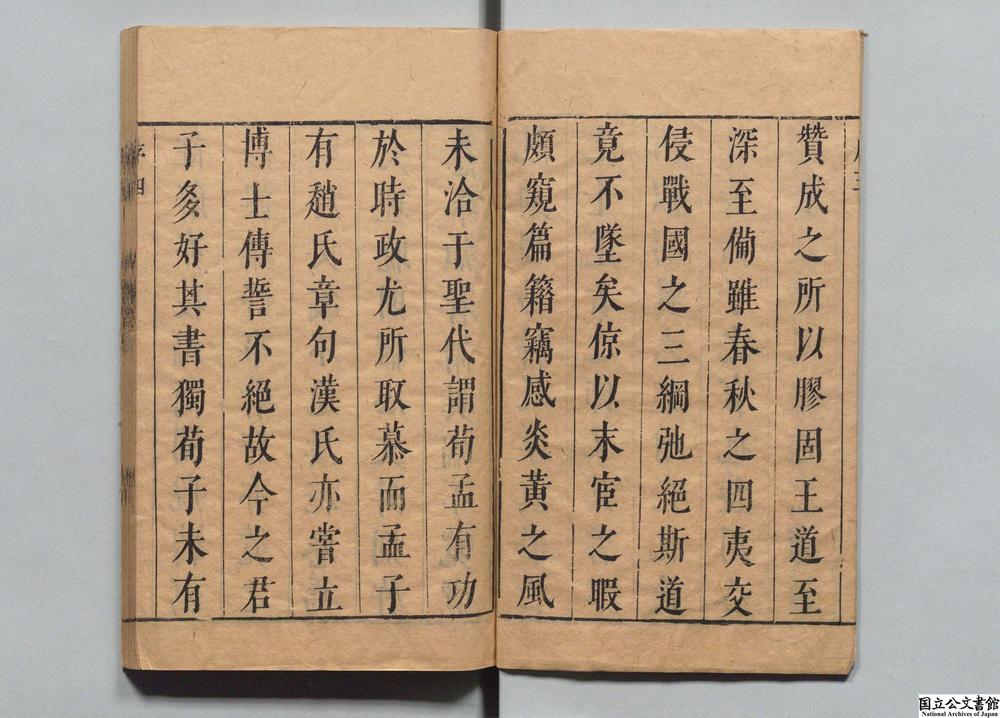 賛成之所以膠固王道至
深至備雖春秋之四夷交
侵戰國之三綱弛絕斯道
竟不墜矣倞以末宦之暇
頗窺篇籍竊感炎黃之風
未洽于聖代謂荀孟有功
於時政尤所耽慕而孟子
有趙氏章句漢氏亦嘗立
博士傳誓不絕故今之君
子多好其書獨荀子未有
序四
国立公文書館
National Archives of Japan